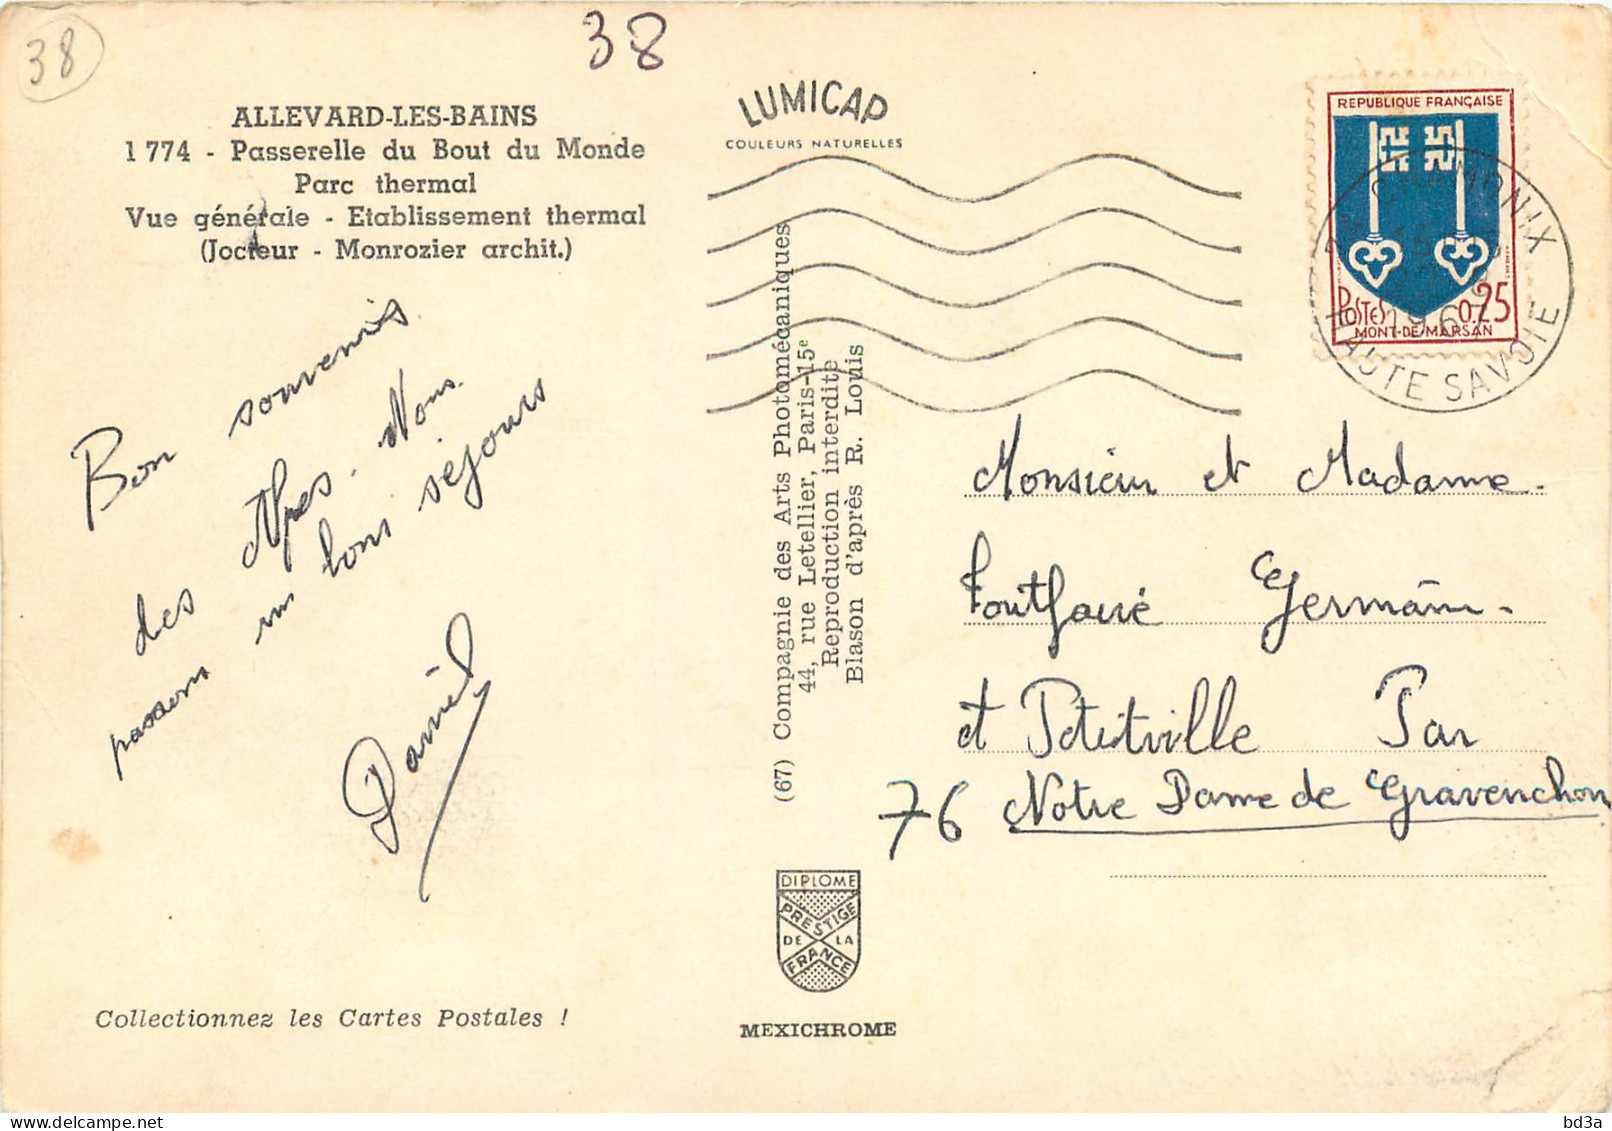 38
38
ALLEVARD-LES-BAINS
1 774 - Passerelle du Bout du Monde
Parc thermal
Vue générale - Etablissement thermal
(Jocteur - Monrozier archit.)
Bon souvenirs
des Alpes. Nous
passons un bons séjours
Daniel
Collectionnez les Cartes Postales !
LUMICAP
COULEURS NATURELLES
(67) Compagnie des Arts Photomécaniques
44, rue Letellier, Paris-15e
Reproduction interdite
Blason d'après R. Louis
DIPLOME
PRESTIGE
DE LA
FRANCE
MEXICHROME
REPUBLIQUE FRANÇAISE
POSTES 0.25
MONT-DE-MARSAN
CHAMONIX
1967
HAUTE SAVOIE
Monsieur et Madame
Germain
et Petitville Par
76 Notre Dame de Gravenchon
bd3a